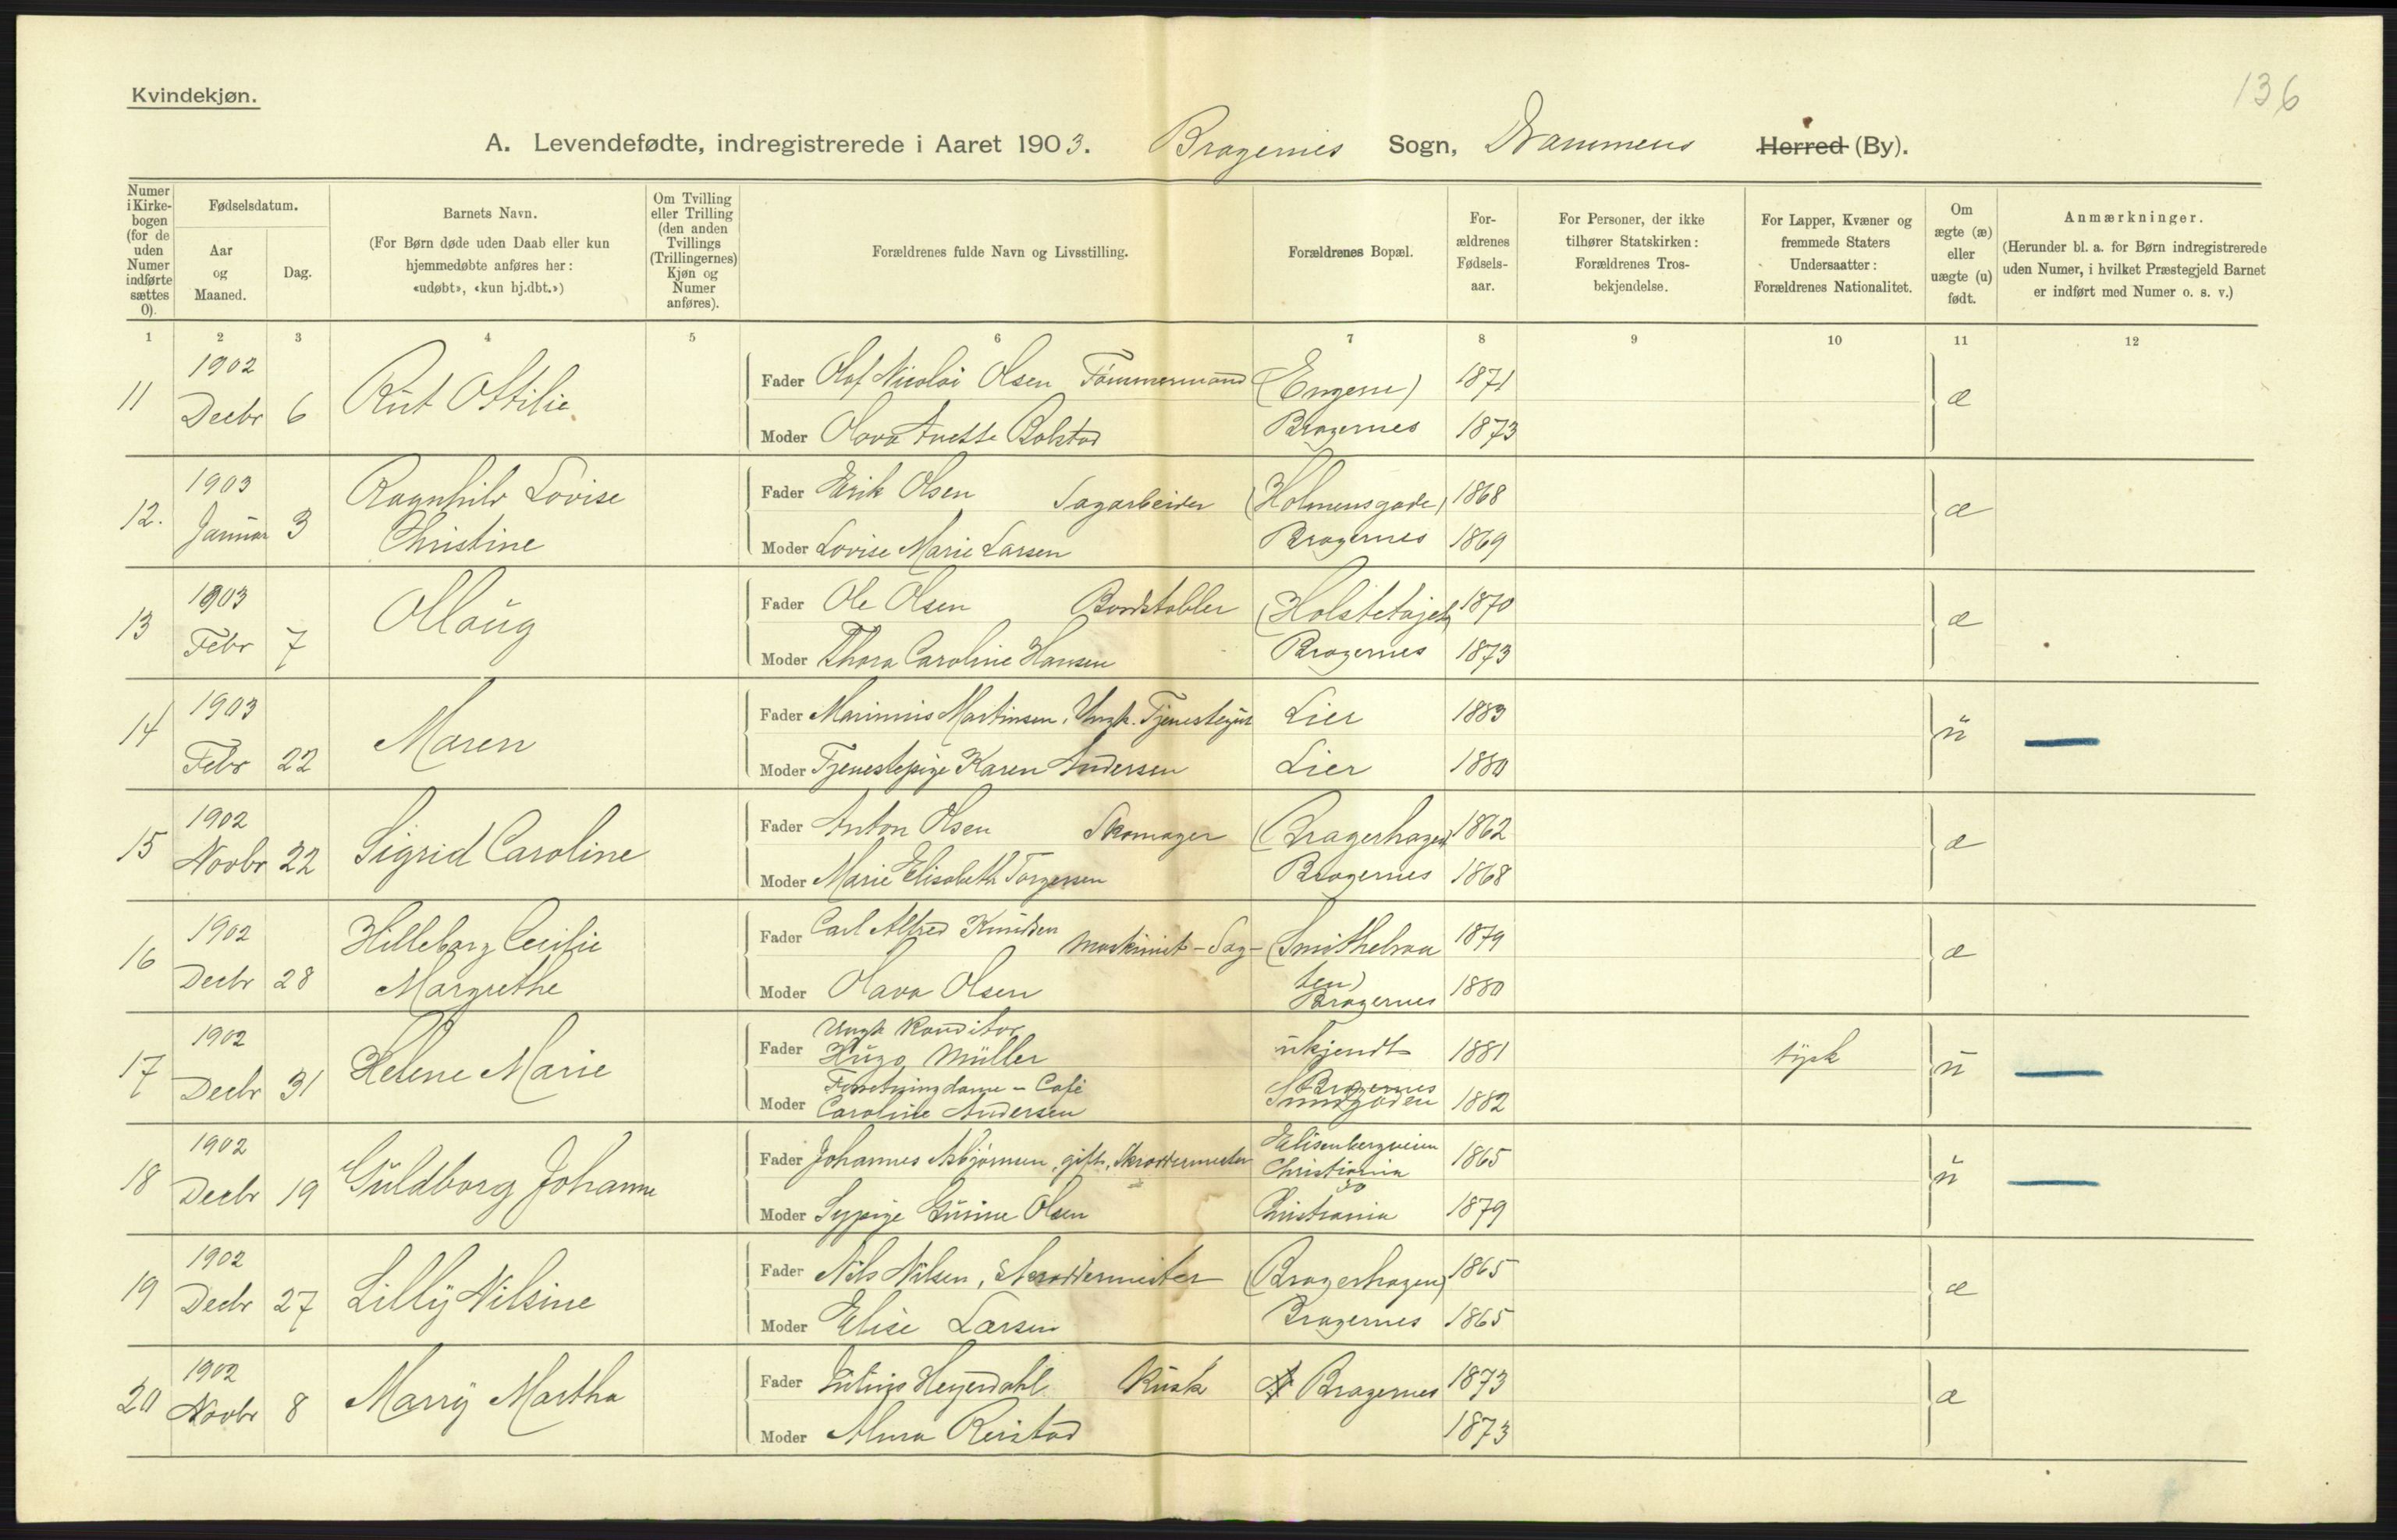 136
Kvindekjøn.
A. Levendefødte, indregistrerede i Aaret 1903. Bragernes Sogn, Drammens Herred (By).
Numer i Kirkebogen (for de uden Numer indførte sættes 0).
Fødselsdatum.
Aar og Maaned.
Dag.
Barnets Navn.
(For Børn døde uden Daab eller kun hjemmedøbte anføres her: «udøbt», «kun hj.dbt.»)
Om Tvilling eller Trilling (den anden Tvillings (Trillingernes) Kjøn og Numer anføres).
Forældrenes fulde Navn og Livsstilling.
Forældrenes Bopæl.
Forældrenes Fødselsaar.
For Personer, der ikke tilhører Statskirken: Forældrenes Trosbekjendelse.
For Lapper, Kvæner og fremmede Staters Undersaatter: Forældrenes Nationalitet.
Om ægte (æ) eller uægte (u) født.
Anmærkninger.
(Herunder bl. a. for Børn indregistrerede uden Numer, i hvilket Præstegjeld Barnet er indført med Numer o. s. v.)
1 2 3 4 5 6 7 8 9 10 11 12
11 1902 Decbr 6 Rut Ottilie
Fader Olaf Nicolai Olsen Tømmermand (Engene) 1871 æ
Moder Olava Anette Bolstad Bragernes 1873
12. 1903 Januar 3 Ragnhild Lovise Christine
Fader Erik Olsen Sagarbeider (Holmensgade) 1868 æ
Moder Lovise Marie Larsen Bragernes 1869
13 1903 Febr 7 Ollaug
Fader Ole Olsen Bordstabler (Holstetajet) 1870 æ
Moder Thora Caroline Hansen Bragernes 1873
14 1903 Febr 22 Maren
Fader Marinius Martinsen, Ungk. Tjenestegut Lier 1883 u
Moder Tjenestepige Karen Andersen Lier 1880
15 1902 Novbr 22 Sigrid Caroline
Fader Anton Olsen Skomager (Bragerhagen) 1862 æ
Moder Marie Elisabeth Torgersen Bragernes 1868
16 1902 Decbr 28 Hilleborg Cecilie Margrethe
Fader Carl Alfred Knudsen Maskinist - Sag - (Smithebraa 1879 æ
Moder Olava Olsen ten) Bragernes 1880
17 1902 Decbr 31 Helene Marie
Fader Ungk Konditor Hugo Müller ukjendt 1881 tysk u
Moder Forretningdame - Café Caroline Andersen Bragernes Smidgaden 1882
18 1902 Decbr 19 Guldborg Johanne
Fader Johannes Asbjørnsen, gift, Skræddermester Elisenbergveien Christiania 1865 u
Moder Sypige Gusine Olsen 30 Christiania 1879
19 1902 Decbr 27 Lilly Nilsine
Fader Nils Nilsen, Skræddermester (Bragerhagen) 1865 æ
Moder Elise Larsen Bragernes 1865
20 1902 Novbr 8 Marry Martha
Fader Julius Heyerdahl Kusk Bragernes 1873 æ
Moder Alma Reistad 1873